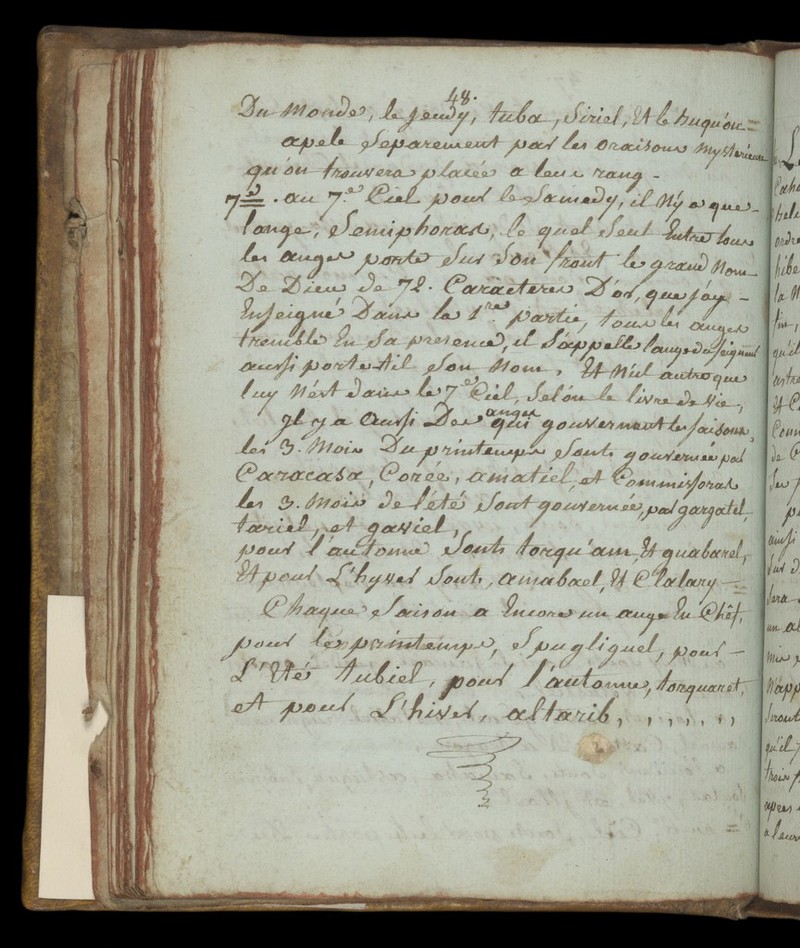 48.
Du monde, le jeudy, tuba, Siriel, Et le huqu'on =
apele separement par les oraisons mysterieuses
qu'on trouvera placée a leur rang -
7e. au 7e. Ciel pour le Samedy, il n'y a que -
l'ange, Semiphoras, le quel seul Entre tous
les anges porte sur son front le grand Nom
De Dieu de 72. Caracteres D'or, que j'ay -
Enseigné Dans la 1re. partie, tous les anges
tremble En sa presence, il s'appelle l'ange du seigneur
aussi porte-til son Nom, Et Nul autre que
luy N'est dans le 7e Ciel, selon le livre de vie,
Il y a aussi Des anges qui gouvernent les saisons,
les 3. Mois Du printemps sont gouvernée par
Caracasa, Corée, amatiel, et Commissoras
les 3. Mois de l'été sont gouvernée, par gargatel,
tariel, et gaviel,
pour l'automne sont torqu'am, Et guabarel,
Et pour L'hyver sont, amabael, Et Clalary -
Chaque saison a Encore un ange En Chêf,
pour le printemps, Spugliguel, pour -
L'Eté tubiel, pour l'automne, torquaret,
et pour L'hiver, altarib, , , , , ,